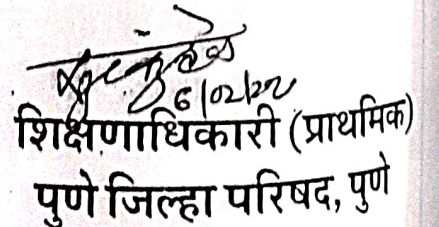 6/02/22
शिक्षणाधिकारी (प्राथमिक)
पुणे जिल्हा परिषद, पुणे